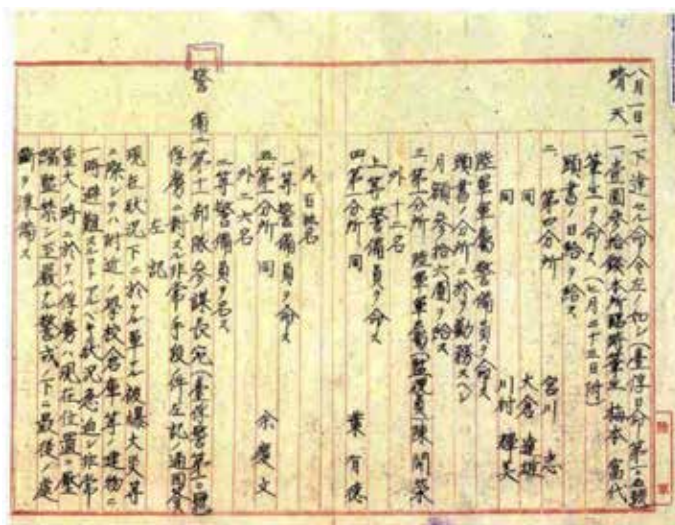 八月一日 一下達セル命令左ノ如シ(臺俘日命第一〇五號)
晴天 一壹圓參拾錢本所臨時筆生 梅本富代
筆生ヲ命ス(七月二十五日附)
頭書ノ日給ヲ給ス
二 第四分所 宮川 忠
同 大倉達雄
同 川村輝夫
陸軍軍屬警備員ヲ命ス
頭書ノ分所ニ於テ勤務スヘシ
月額參拾六圓ヲ給ス
三第一分所 陸軍軍屬(監視員)陳開築
外十二名
上等警備員ヲ命ス
四第一分所 同 葉有德
外百拾名
一等警備員ヲ命ス
五第一分所 同 余慶文
外二六名
二等警備員ヲ命ス
警備 一第十一部隊參謀長宛(臺俘警第一〇號)
俘虜ニ對スル非常手段ノ件左記ノ通回答
左記
現在狀況下ニ於テハ單ナル被爆火災等
ニ際シテハ附近ノ學校倉庫等ノ建物ニ
一時避難スルトアルヘキ狀況急迫シ非常
重大ノ時ニ於テハ俘虜ハ現在位置ニ壓
縮監禁シ至嚴ナル警戒ノ下ニ最後ノ處
斷ヲ準備ス
陸軍